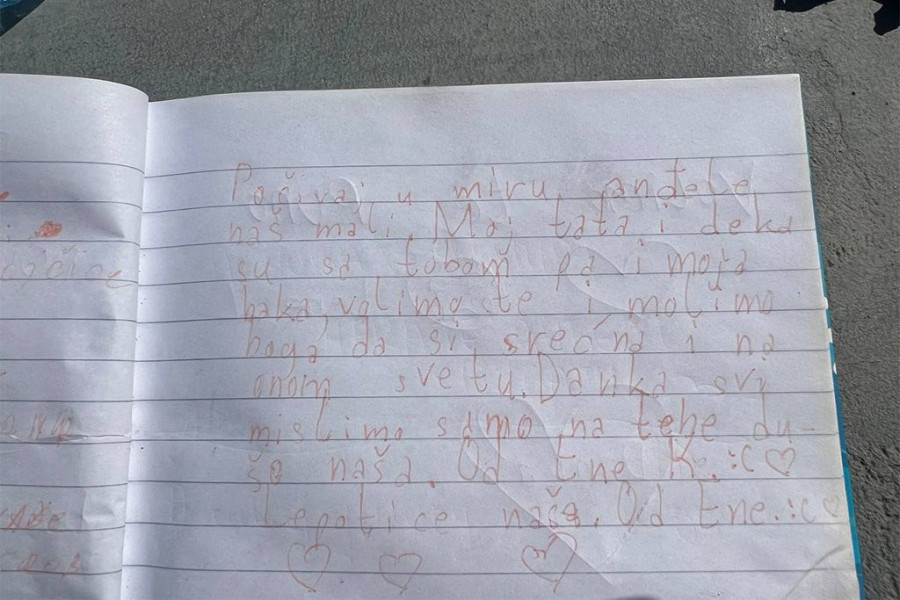 Počivaj u miru, anđele
naš mali. Moj tata i deka
su sa tobom pa i moja
baka, volimo te i molimo
boga da si srećna i na
onom svetu. Danka svi
mislimo samo na tebe du-
šo naša. Od Ene K. :C ♡
Lepotice naša. Od Ene. :C ♡